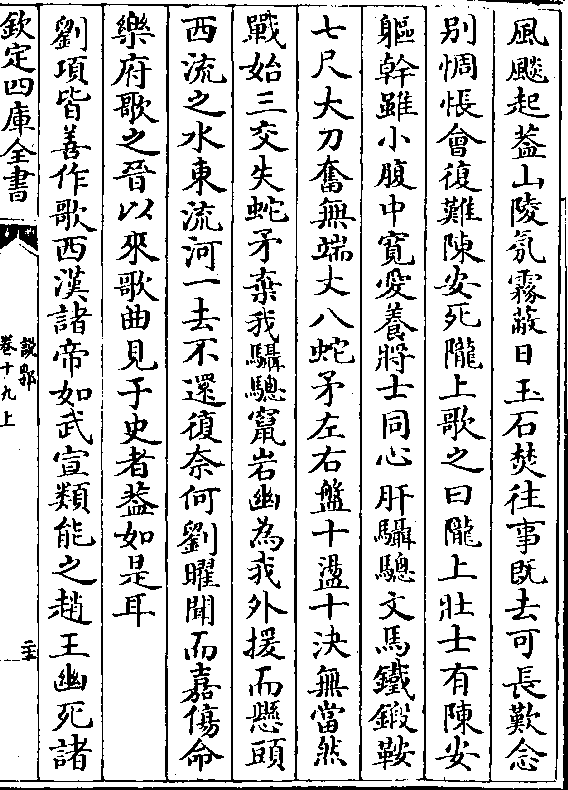 風飈起葢山陵氛霧蔽日玉石焚往事既去可長歎念
别惆悵㑹復難陳安死隴上歌之曰隴上壯士有陳安
軀幹雖小腹中寛愛養將士同心肝驌驄文馬鐵鍛鞍
七尺大刀奮無端丈八蛇矛左右盤十盪十決無當然
戰始三交失蛇矛棄我驌驄竄岩幽為我外援而懸頭
西流之水東流河一去不還復奈何劉曜聞而嘉傷命
樂府歌之晉以來歌曲見于史者葢如是耳
劉項皆善作歌西漢諸帝如武宣類能之趙王幽死諸
欽定四庫全書
說郛
卷十九上
二十